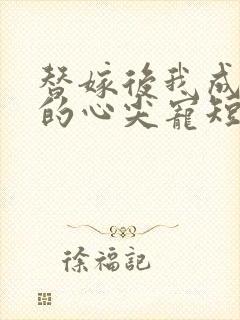 替嫁後我成
的心尖寵短
徐福記